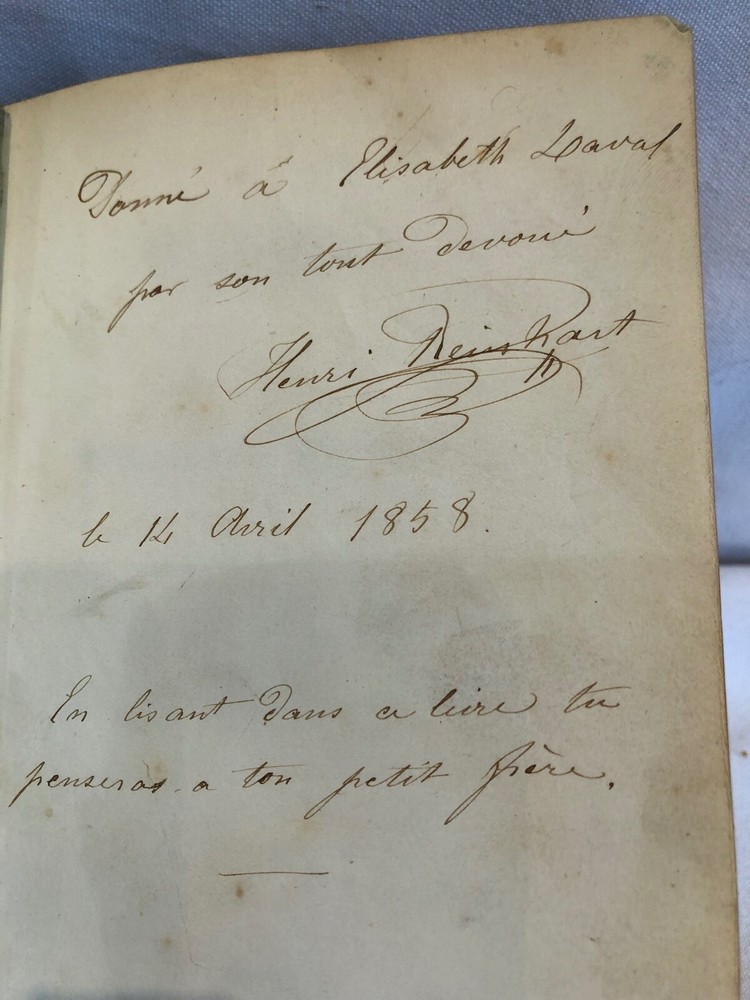 Donné à Elisabeth Laval
par son tout devoué
Henri Reinhart
le 14 Avril 1858.
En lisant dans ce livre tu
penseras a ton petit frère.